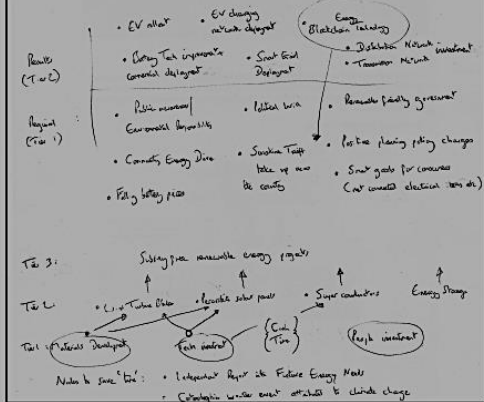 • EV rollout • EV charging network deployment • Energy Blockchain technology
Results (Tier 2) • Battery Tech improvements commercial deployment • Smart Grid Deployment • Distribution Network investment
• Transmission Network
Required (Tier 1) • Public awareness/ Environmental Responsibility • Political • Renewable friendly government
• Community Energy Drive • Sunshine Tariff take up across the country • Positive planning policy changes
• Falling battery prices • Smart goods for consumers
(net connected electrical items etc)
Tier 3: Subsidy free renewable energy projects
Tier 2: • Turbine Blades • solar panels • Super conductors Energy Storage
Tier 1: Materials Development Tech investment {Time} People investment
Needs to save 'time': • Independent Report into Future Energy Needs
• Catastrophic weather event attributed to climate change